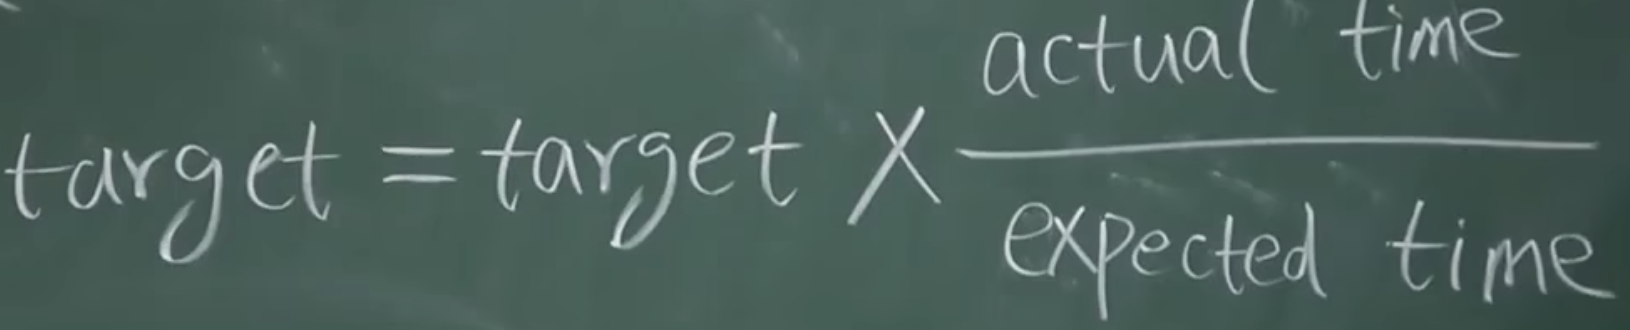 target = target X actual time
expected time